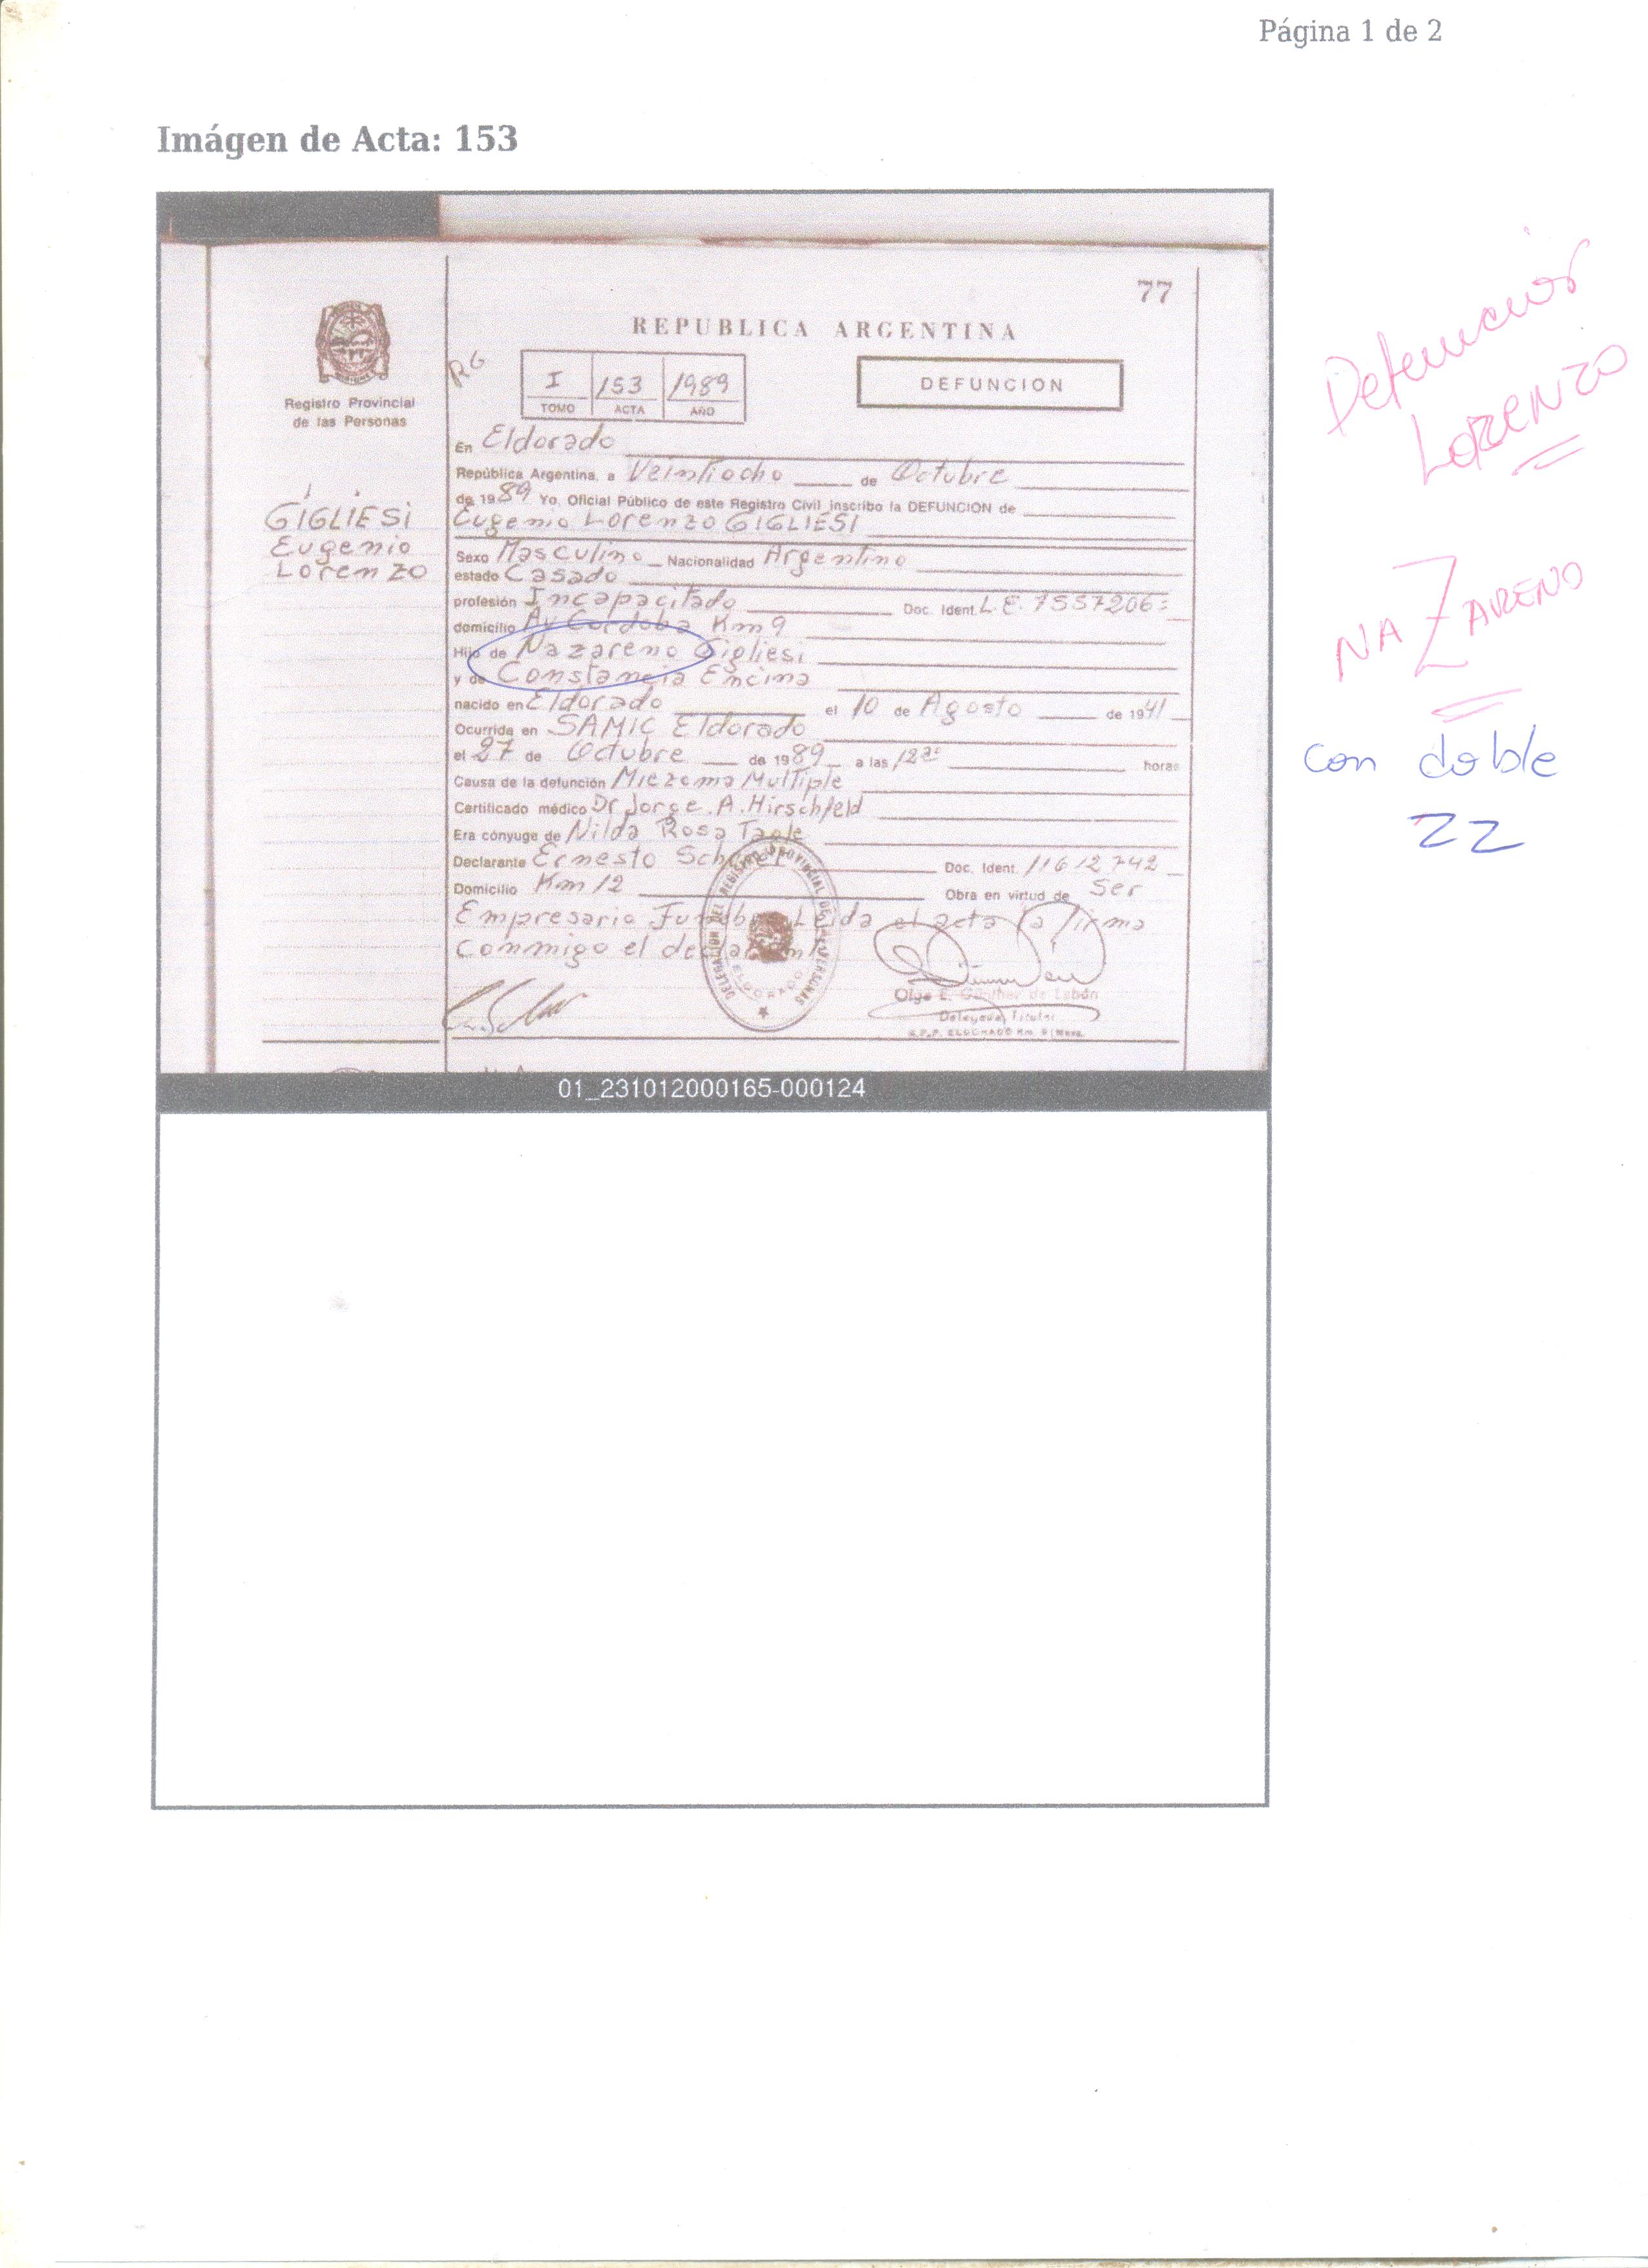 Página 1 de 2
Imágen de Acta: 153
77
REPUBLICA ARGENTINA
RG
I 153 1989
TOMO ACTA AÑO
DEFUNCION
Registro Provincial
de las Personas
GIGLIESI
Eugenio
Lorenzo
En Eldorado
República Argentina, a Veintiocho de Octubre
de 1989 Yo, Oficial Público de este Registro Civil inscribo la DEFUNCION de
Eugenio Lorenzo GIGLIESI
Sexo Masculino Nacionalidad Argentino
estado Casado
profesión Incapacitado Doc. Ident. L.E. 7557206=
domicilio Av Cordoba Km 9
Hijo de Nazareno Gigliesi
y de Constancia Encina
nacido en Eldorado el 10 de Agosto de 1941
Ocurrida en SAMIC Eldorado
el 27 de Octubre de 1989 a las 12 horas
Causa de la defunción Miezoma Multiple
Certificado médico Dr Jorge. A. Hirschfeld
Era cónyuge de Nilda Rosa Tagle
Declarante Ernesto Doc. Ident. 11612742
Domicilio Km 12 Obra en virtud de Ser
Empresario Leida el acta la firma
conmigo el
DELEGACION DEL REGISTRO PROVINCIAL DE LAS PERSONAS
ELDORADO
Olga E. de Labán
Delegada Titular
R.P.P. ELDORADO Km. 9 Mnes.
01_231012000165-000124
Defunción
LORENZO
NAZARENO
con doble
ZZ